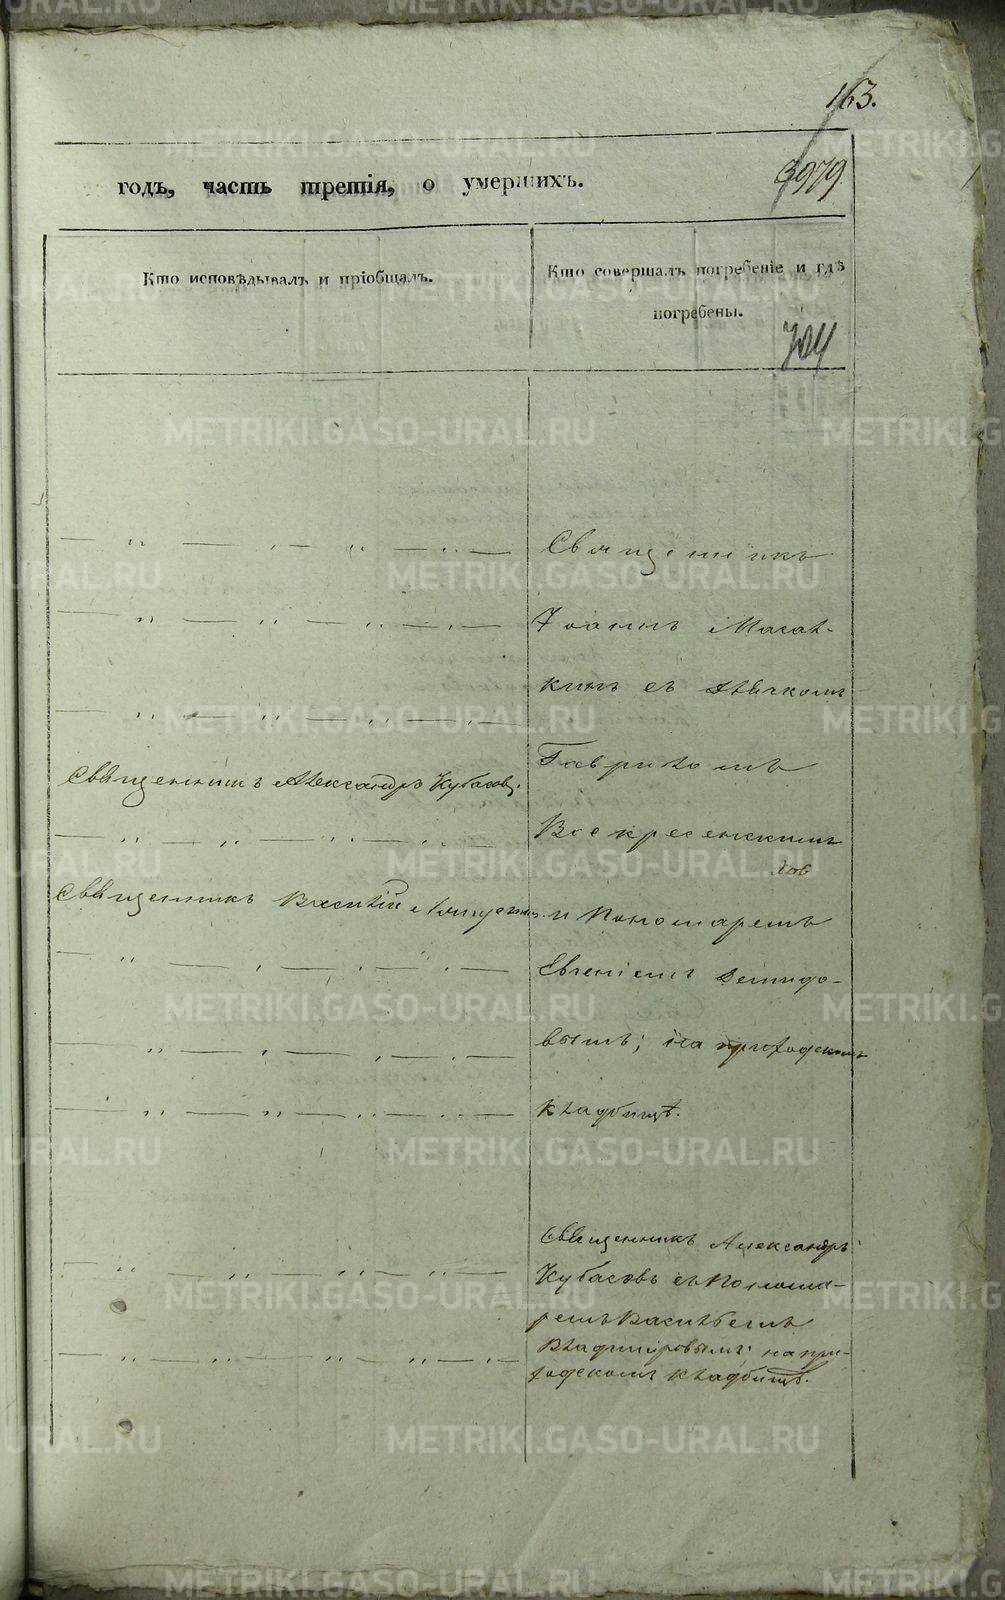 163.
3979
годъ, часть третія, о умершихъ.
Кто исповѣдывалъ и пріобщалъ.
Кто совершалъ погребеніе и гдѣ
погребены.
Священникъ
Іоаннъ Масал-
кинъ съ дьячкомъ
Гавриломъ
Священникъ Александръ Кубасовъ.
Воскресенскимъ
Священникъ Василій
и Пономаремъ
Евгеніемъ Демидо-
вымъ; на приходскомъ
кладбищѣ.
Священникъ Александръ
Кубасовъ съ Понома-
ремъ Василіемъ
Владиміровымъ на при-
ходскомъ кладбищѣ.
METRIKI.GASO-URAL.RU